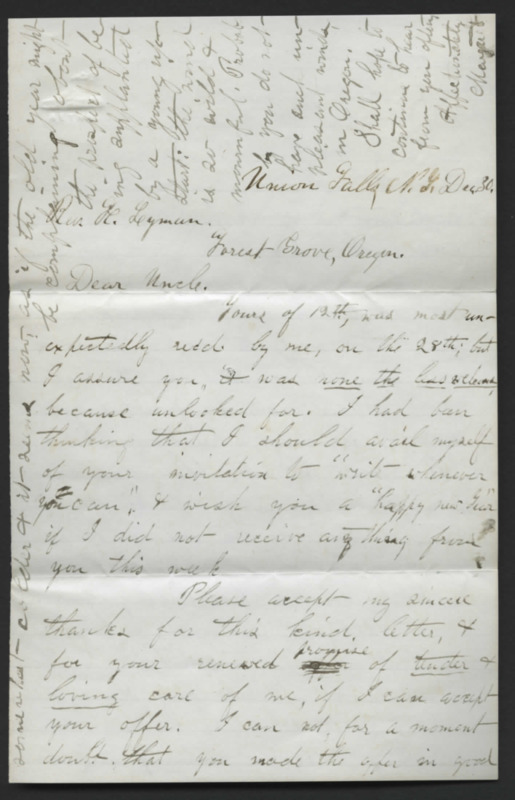 Union Falls, N.Y. Dec 30.
Rev. H. Lyman.
Forest Grove, Oregon.
Dear Uncle.
Yours of 12th, was most un-
expectedly recd by me, on the 28th, but
I assure you, it was none the less welcome,
because unlooked for. I had been
thinking that I should avail myself
of your invitation to "write whenever
you can", & wish you a "happy new Year"
if I did not receive anything from
you this week
Please accept my sincere
thanks for this kind letter, &
for your renewed promise of tender &
loving care of me, if I can accept
your offer. I can not, for a moment
doubt that you made the offer in good
somewhat colder & it seems now, as if the old year might
be complaining about
the prospect of be
ing supplanted
by a young up-
start: the wind
is so wild &
mournful. Probab
ly you do not
have such un-
pleasant winds,
in Oregon.
Shall hope to
continue to hear
from you often
Affectionately